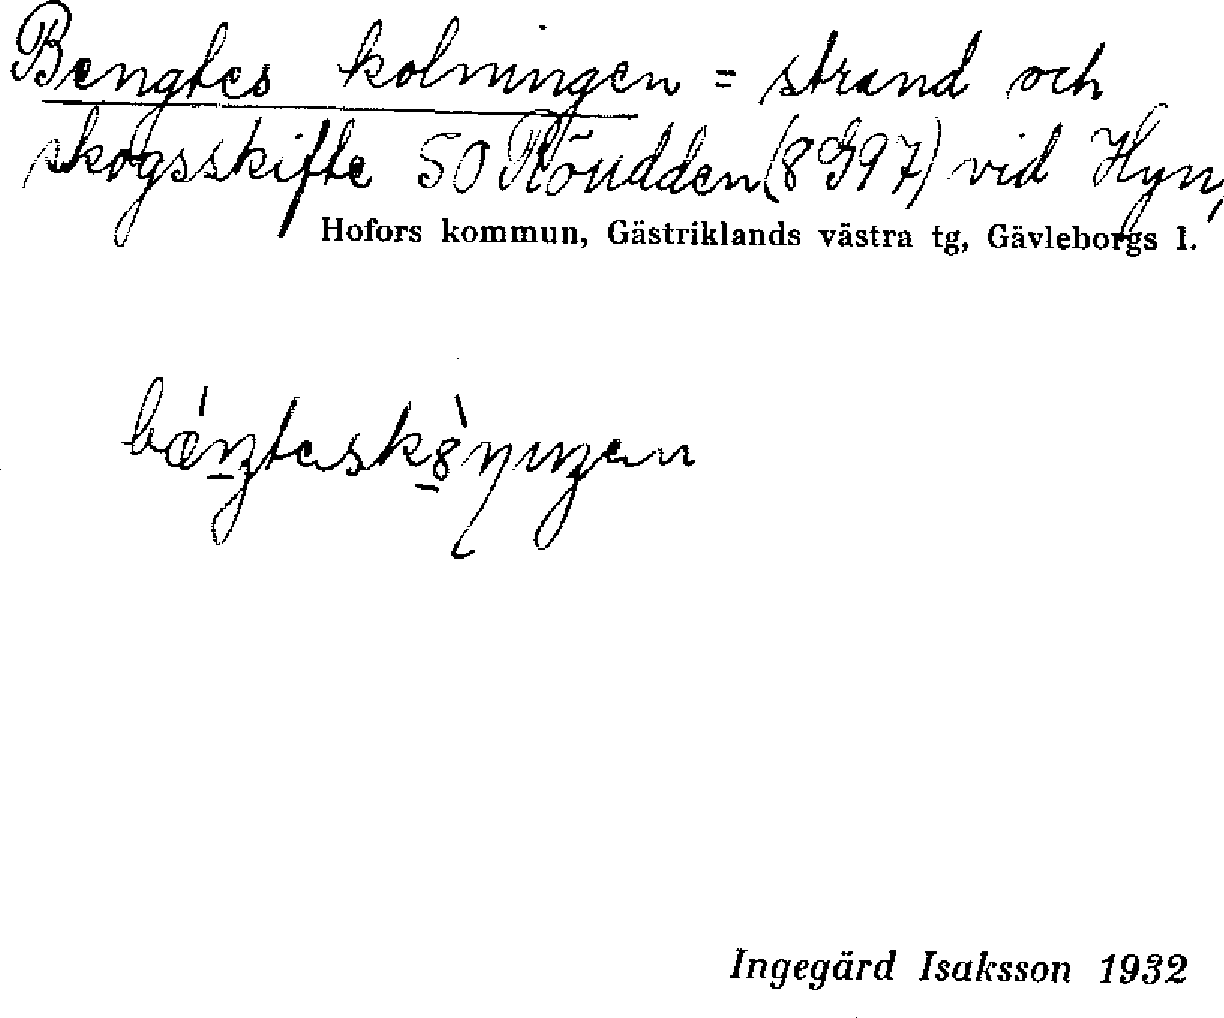 Bengtes kolningen = strand och
skogsskifte SO Röudden (8G97) vid Hyn,
Hofors kommun, Gästriklands västra tg, Gävleborgs l.
Ingegärd Isaksson 1932